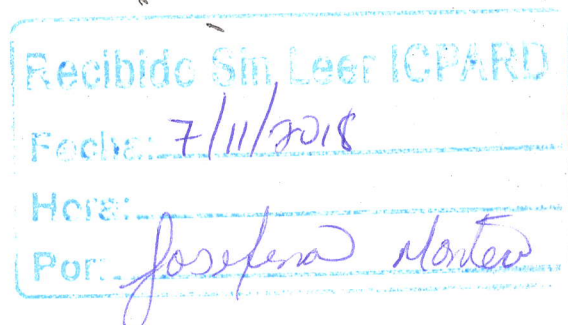 Recibido Sin Leer ICPARD
Fecha: 7/11/2018
Hora:
Por: Josefina Montero